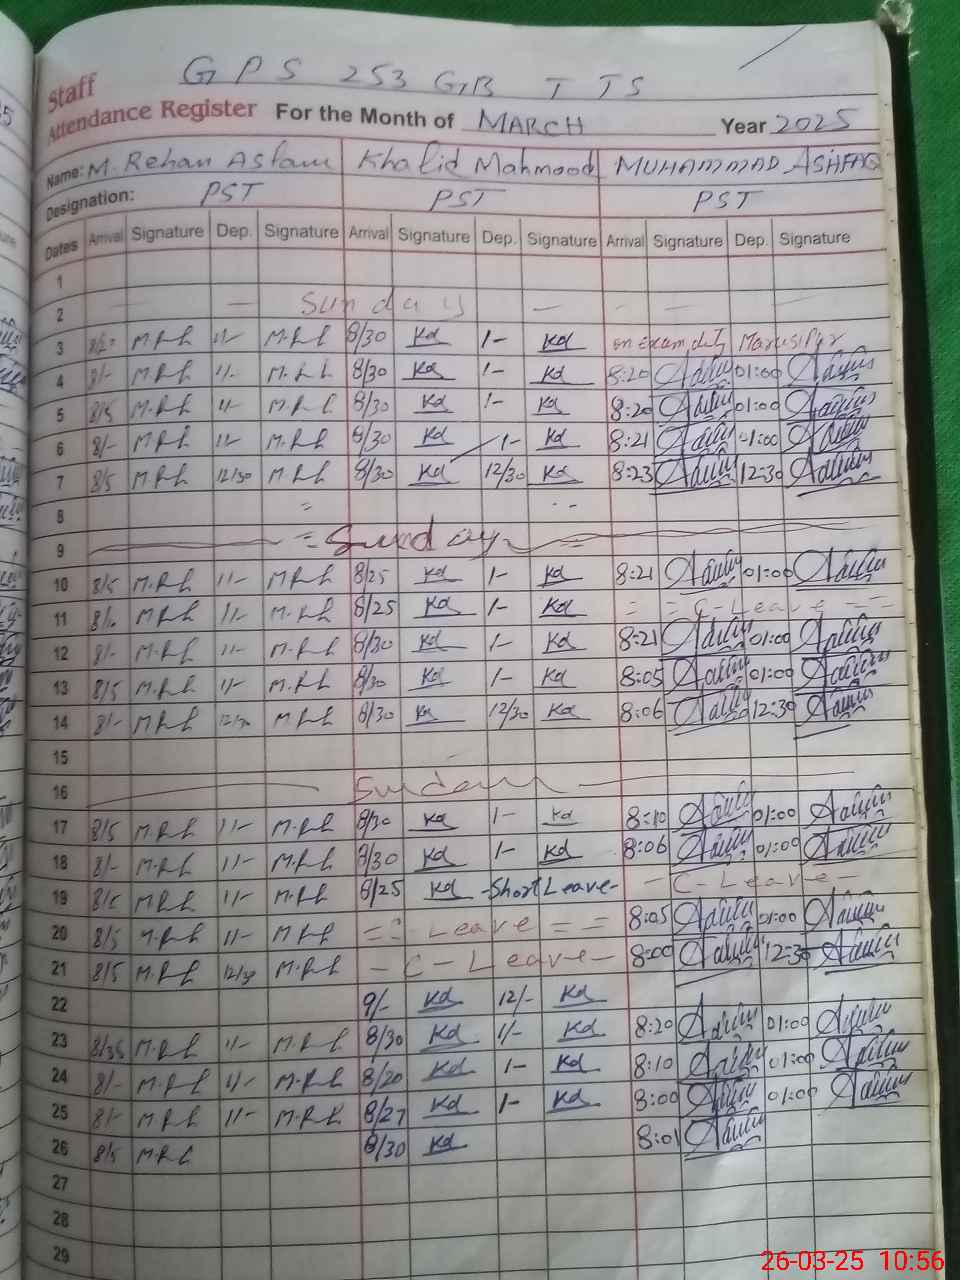 GPS 253 GB TTS
Staff
Attendance Register For the Month of MARCH Year 2025
Name: M. Rehan Aslam Khalid Mahmood MUHAMMAD ASHFAQ
Designation: PST PST PST
Dates Arrival Signature Dep. Signature Arrival Signature Dep. Signature Arrival Signature Dep. Signature
1
2 — — Sunday — — - —
3 M.R.L 11- M.R.L 8/30 Kd 1- Kd on Exam duty
4 8/- M.R.L 11- M.R.L 8/30 Kd 1- Kd 8:20 01:00
5 8/5 M.R.L 11- M.R.L 8/30 Kd 1- Kd 8:20 01:00
6 8/- M.R.L 11- M.R.L 8/30 Kd 1- Kd 8:21 01:00
7 8/5 M.R.L 12/30 M.R.L 8/30 Kd 12/30 Kd 8:23 12:30
8
9 = Sunday =
10 8/5 M.R.L 11- M.R.L 8/25 Kd 1- Kd 8:21 01:00
11 M.R.L 11- M.R.L 8/25 Kd 1- Kd = = C-Leave = =
12 8/- M.R.L 11- M.R.L 8/30 Kd 1- Kd 8:21 01:00
13 8/5 M.R.L 11- M.R.L 8/30 Kd 1- Kd 8:05 01:00
14 8/- M.R.L 12/30 M.R.L 8/30 Kd 12/30 Kd 8:06 12:30
15
16 Sunday
17 8/5 M.R.L 11- M.R.L 8/30 Kd 1- Kd 8:10 01:00
18 8/- M.R.L 11- M.R.L 8/30 Kd 1- Kd 8:06 01:00
19 8/5 M.R.L 11- M.R.L 8/25 Kd -Short Leave- - C-Leave -
20 8/5 M.R.L 11- M.R.L = = Leave = = 8:05 01:00
21 8/5 M.R.L 12/30 M.R.L - C - Leave - 8:00 12:30
22 9/- Kd 12/- Kd
23 8/35 M.R.L 11- M.R.L 8/30 Kd 1/- Kd 8:20 01:00
24 8/- M.R.L 11- M.R.L 8/20 Kd 1- Kd 8:10 01:00
25 8/- M.R.L 11- M.R.L 8/27 Kd 1- Kd 8:00 01:00
26 8/5 M.R.L 8/30 Kd 8:01
27
28
29
26-03-25 10:56